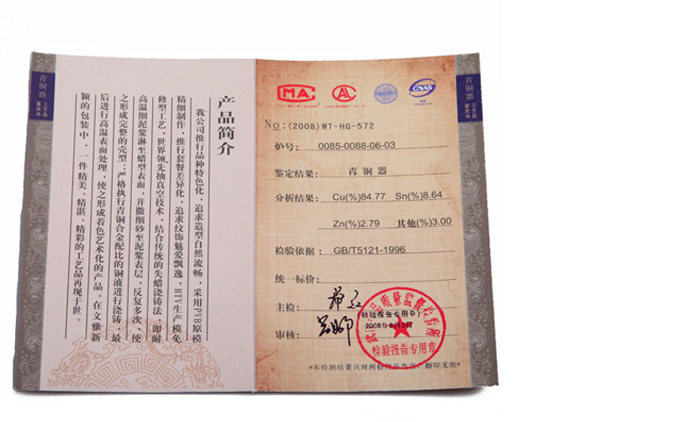 青铜器
产品简介
我公司推行品种特色化，追求造型自然流畅，采用PVB原模
精细制作，推行套餐差异化，追求纹饰魅爱飘逸，HTV生产模免
修型工艺，世界领先抽真空技术，结合传统的失蜡浇铸法，即耐
高温细泥浆淋至蜡型表面，并撒细砂至泥浆表层，反复多次，使
之形成完整的壳型；严格执行青铜合金配比的铜液进行浇铸，最
后进行高温表面处理，使之形成着色艺术化的产品。在文雅新
颖的包装中，一件精美、精湛、精彩的工艺品再现于世。
MA
CAL
CNAS
No:(2008)WT-HG-572
炉号： 0085-0088-06-03
鉴定结果： 青铜器
分析结果： Cu(%)84.77 Sn(%)8.64
Zn(%)2.79 其他(%)3.00
检验依据： GB/T5121-1996
统一标价：
主检：
审核：
(检验报告专用章)
质量监督检验所
检验报告专用章
青铜器